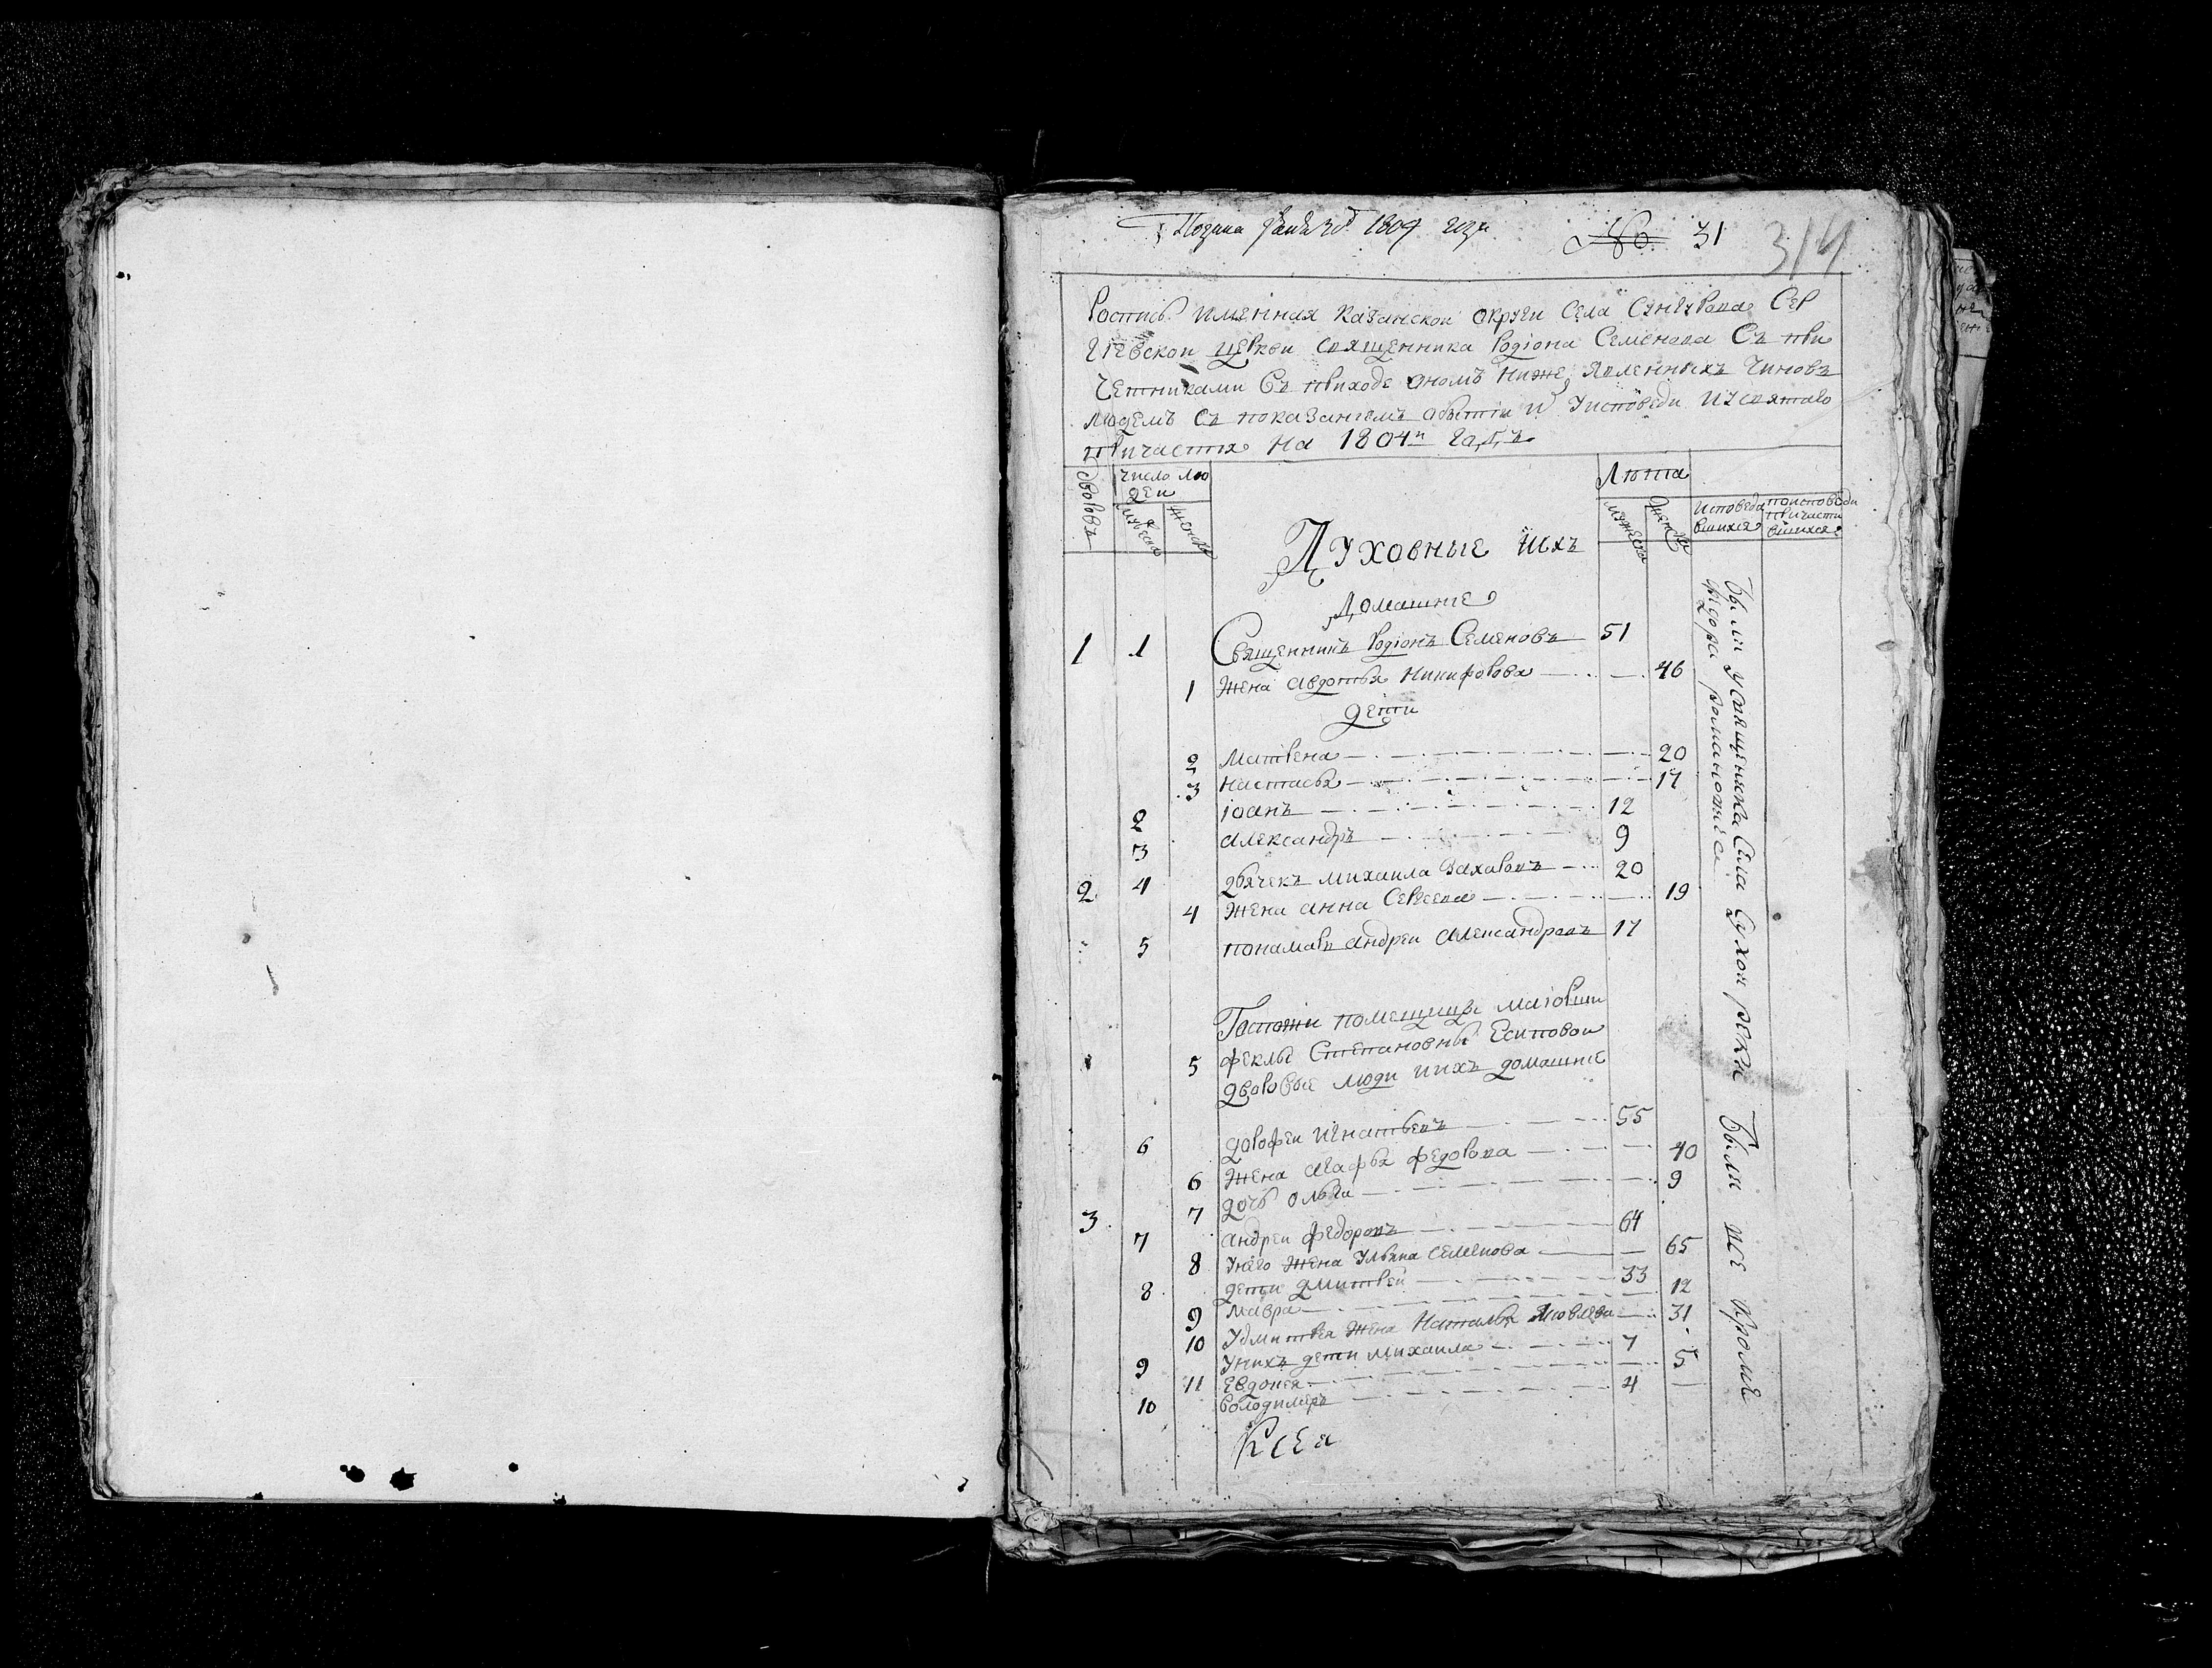 1804 года № 31 314
Роспись именная Казанской округи Села Сунгурова Сер
гиевской церкви священника Родiона Семенова Съ при
четниками Съ приходе ономъ ниже явленныхъ чиновъ
людемъ съ показанiемъ о бытiи и у исповеди и у святаго
причастiя на 1804й годъ
Дворовъ
Число лю
дей
мужеска
женска
Лета
мужеска
женска
исповеда
вшихся
по исповеди
причасти
вшихся
Духовные ихъ
Домашнiе
1 1 Священникъ Родiонъ Семеновъ 51
1 Жена Авдотья Никифорова 46
дети
2 Матрена 20
3 Настасья 17
2 Iоанъ 12
3 Александръ 9
2 4 дьячекъ Михаила Захаровъ 20
4 Жена Анна Сергеева 19
5 понамарь Андреи Александровъ 17
Госпожи помещицы маiорши
5 Феклы Степановны Есиповои
дворовые люди ихъ домашнiе
6 дорофеи Игнатьевъ 55
6 Жена Агафья Федорова 40
7 дочь Ольга 9
3 7 Андреи Федоровъ 64
8 У него жена Ульяна Семенова 65
8 дети Дмитреи 33
9 Мавра 12
10 У дмитрея жена Наталья Яковлева 31
9 У нихъ дети Михаила 7
11 Евдокея 5
10 Володимеръ 4
были у священика Села Сухои реки
Федора
были же кроме